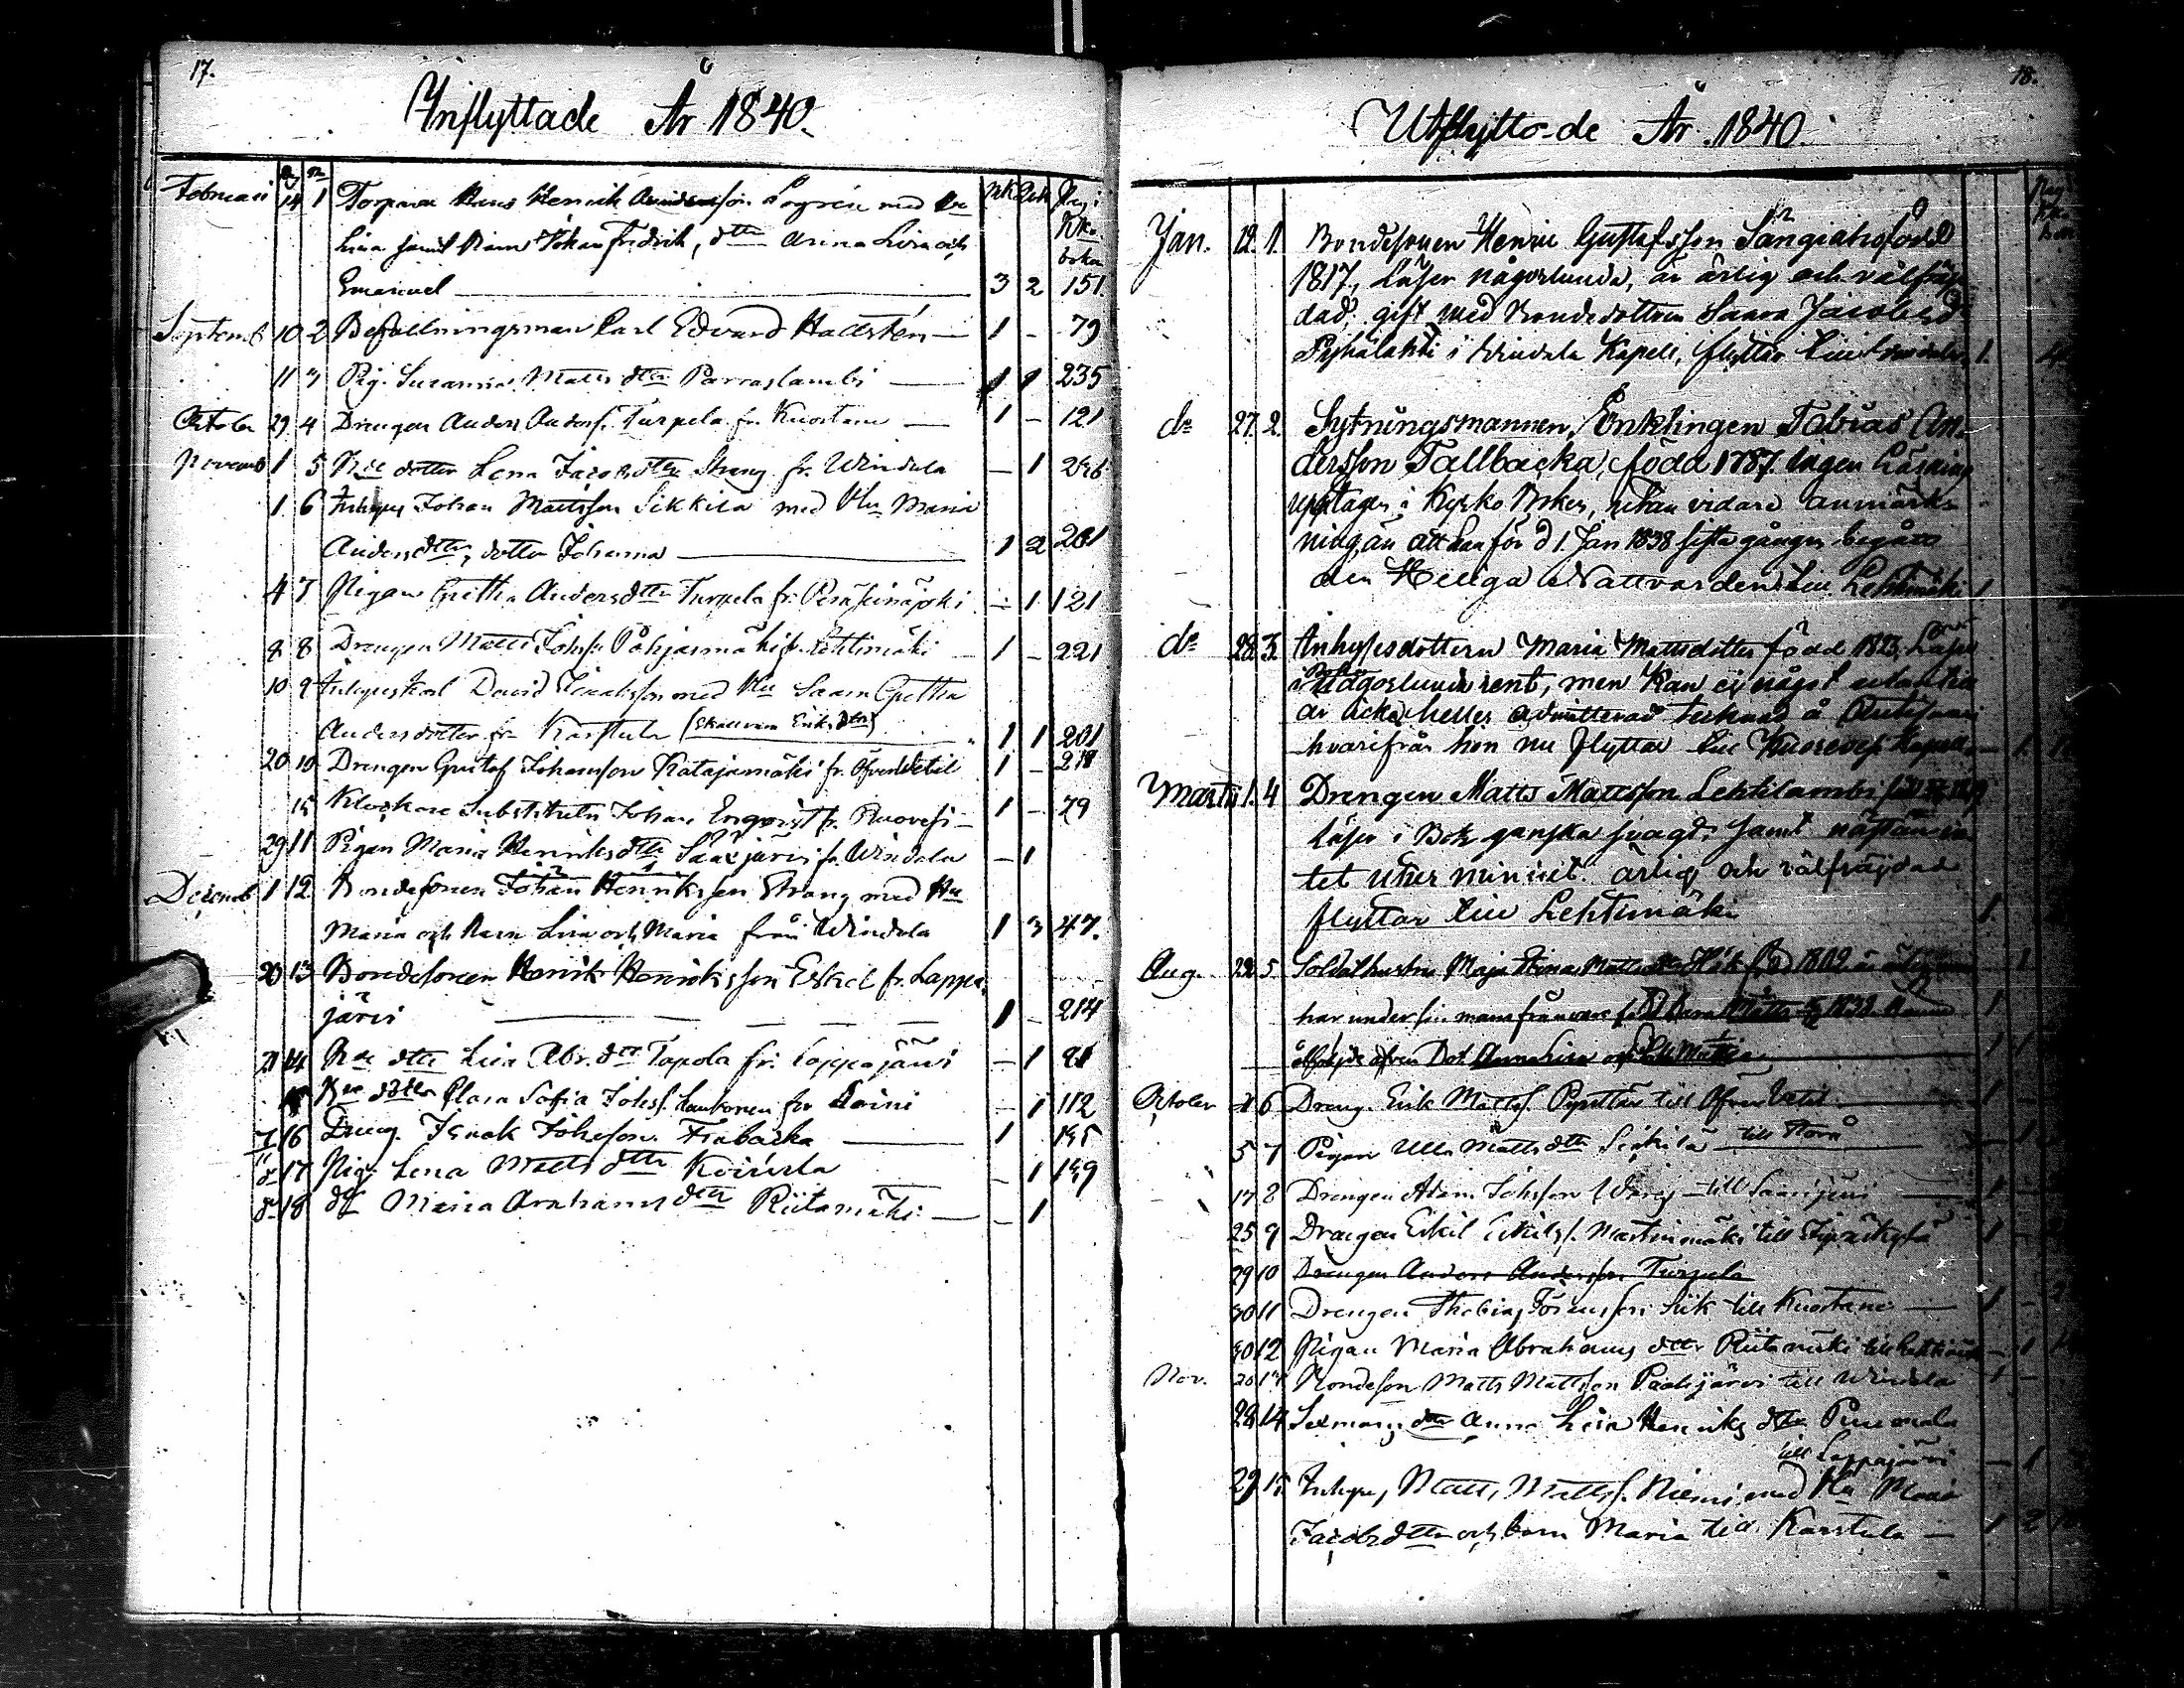 17.
Inflyttade År 1840.
Februari 14 1 Torparen Hans Henrik Andersson Logrén med
Lisa samt Barn Johan Fredrik, dtter Arina Lovisa och
Emanuel 3 2 151.
Septemb 10 2 Befallningsman Carl Edvard Hallstén 1 - 79
11 3 Pig. Susanna Matts dtter Parraslambi 1 235
October 29 4 Drengen Anders Anderss. Turpela fr. Kuortane 1 - 121
Novemb 1 5 dotter Lena Jacobsdtter Strang fr. Windala - 1
1. 6 Inhyses Johan Mattsson Sikkila med Hu Maria
Anders dtter, dotter Johanna 1 2 201
4 7 Pigan Gretha Andersdtter Turpela fr. Peräseinäjoki - 1 121
8 8 Drengen Matts Johss. Pohjasmäki fr. Lehtimäki 1 - 221
10 9 Inhyseskarl David Isaaksson med Hu Saara Gretha
Anders dotter fr. Karstula (skall vara Eriks dtter) 1 1 201
20 10 Drengen Gustaf Johansson Katajamäki fr. Öfvervetil 1 -
15 Klockare Substituten Johan Enqvist fr. Ruovesi 1 - 79
29 11 Pigan Maria Henriksdtter Sääxjärvi fr. Windala - 1
Decemb 1 12. Bondesonen Johan Henriksson Strang med Hu
Maria och Barn Lisa och Maria från Windala 1 3 47.
20 13 Bondesonen Henrik Henriksson Eskel fr. Lappa-
järvi 1 - 214
21 14 dtter Lisa Abr. dtter Tapola fr. Lappajärvi - 1
dotter Clara Sofia Johss. Laukonen fr. Soini - 1 112
16 Dreng. Isaak Johsson Frabacka 1
17 Pig. Lena Matts dtter Koivula - 1 149
18 Maria Abrahams dtter Riitamäki - 1
18.
Utflyttade År 1840.
Jan. 12. 1. Bondesonen Henric Gustafsson Långiaho född
1817, Läser någorlunda, är ärlig och välfräj-
dad, gift med Bondedottren Saara Jacobsd.
Pyhälahti i Windala Kapell, flyttar till Windala, 1.
do 27. 2. Sytningsmannen, Enklingen Tobias An-
dersson Tallbacka, född 1787. Ingen Läsning
upptagen i Kyrko Boken, utan vidare anmärk-
ning än att han för d 1. Jan 1838 sista gången begått
den Heliga Nattvarden till Lehtimäki 1
do 28. 3. Inhysesdottern Maria Mattsdotter född 1823, Läser
i Bok någorlunda rent, men kan ej något utantill
är icke heller admitterad
hvarifrån hon nu flyttar till Kuorevesi Kapell 1.
Marti 1. 4 Drengen Matts Mattsson Lehtilambi
läser i Bok ganska svagt, samt nästan in-
tet utur minnet. ärlig och välfräjdad
flyttar till Lehtimäki 1.
Aug. 22. 5. Soldathustru Maja Stina Matts dtter Hök född 1802 är
har under sin mans frånvaro född Barn Matts 1838
Dot. Anna Lisa och
October 6 Dreng. Erik Mattss. till Öfver Vetil 1
5 7 Pigan Ulla Matts dtter Sikkilä till
17 8 Drengen Adam Johsson till Saarijärvi 1 -
25 9 Drengen Eskil Eskilss. Martinmäki till Jyväskylä 1 -
29 10 Drengen Anders Andersson Turpela
30 11 Drengen Thobias till Kuortane 1 -
30 12 Pigan Maria Abrahams dtter Riitamäki till Lehtimäki - 1
Nov. 26 13 Bondeson Matts Mattsson Pääkjärvi till Windala 1 -
28 14 Sexmans dtter Anna Lisa Henriks dtter
till Lappajärvi - 1
29 15. Inhyses Matts Mattss. Niemi med Hu Maria
Jacobsdtter och barn Maria till Karstula 1 2